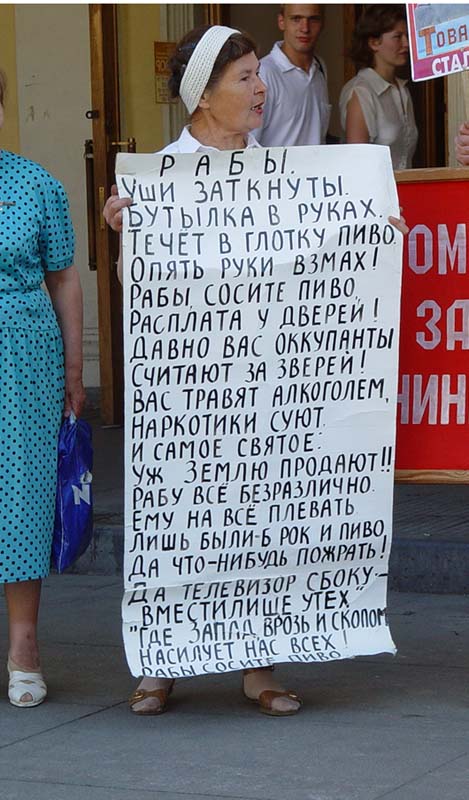 РАБЫ.
УШИ ЗАТКНУТЫ.
БУТЫЛКА В РУКАХ.
ТЕЧЁТ В ГЛОТКУ ПИВО.
ОПЯТЬ РУКИ ВЗМАХ!
РАБЫ, СОСИТЕ ПИВО,
РАСПЛАТА У ДВЕРЕЙ!
ДАВНО ВАС ОККУПАНТЫ
СЧИТАЮТ ЗА ЗВЕРЕЙ!
ВАС ТРАВЯТ АЛКОГОЛЕМ,
НАРКОТИКИ СУЮТ.
И САМОЕ СВЯТОЕ:
УЖ ЗЕМЛЮ ПРОДАЮТ!!
РАБУ ВСЁ БЕЗРАЗЛИЧНО.
ЕМУ НА ВСЁ ПЛЕВАТЬ
ЛИШЬ БЫЛИ-Б РОК И ПИВО,
ДА ЧТО-НИБУДЬ ПОЖРАТЬ!
ДА ТЕЛЕВИЗОР СБОКУ-
"ВМЕСТИЛИЩЕ УТЕХ"
"ГДЕ ЗАПАД, ВРОЗЬ И СКОПОМ,
НАСИЛУЕТ НАС ВСЕХ!
РАБЫ СОСИТЕ ПИВО
ТОВА
СТАЛ
ОМ
ЗА
НИН
N